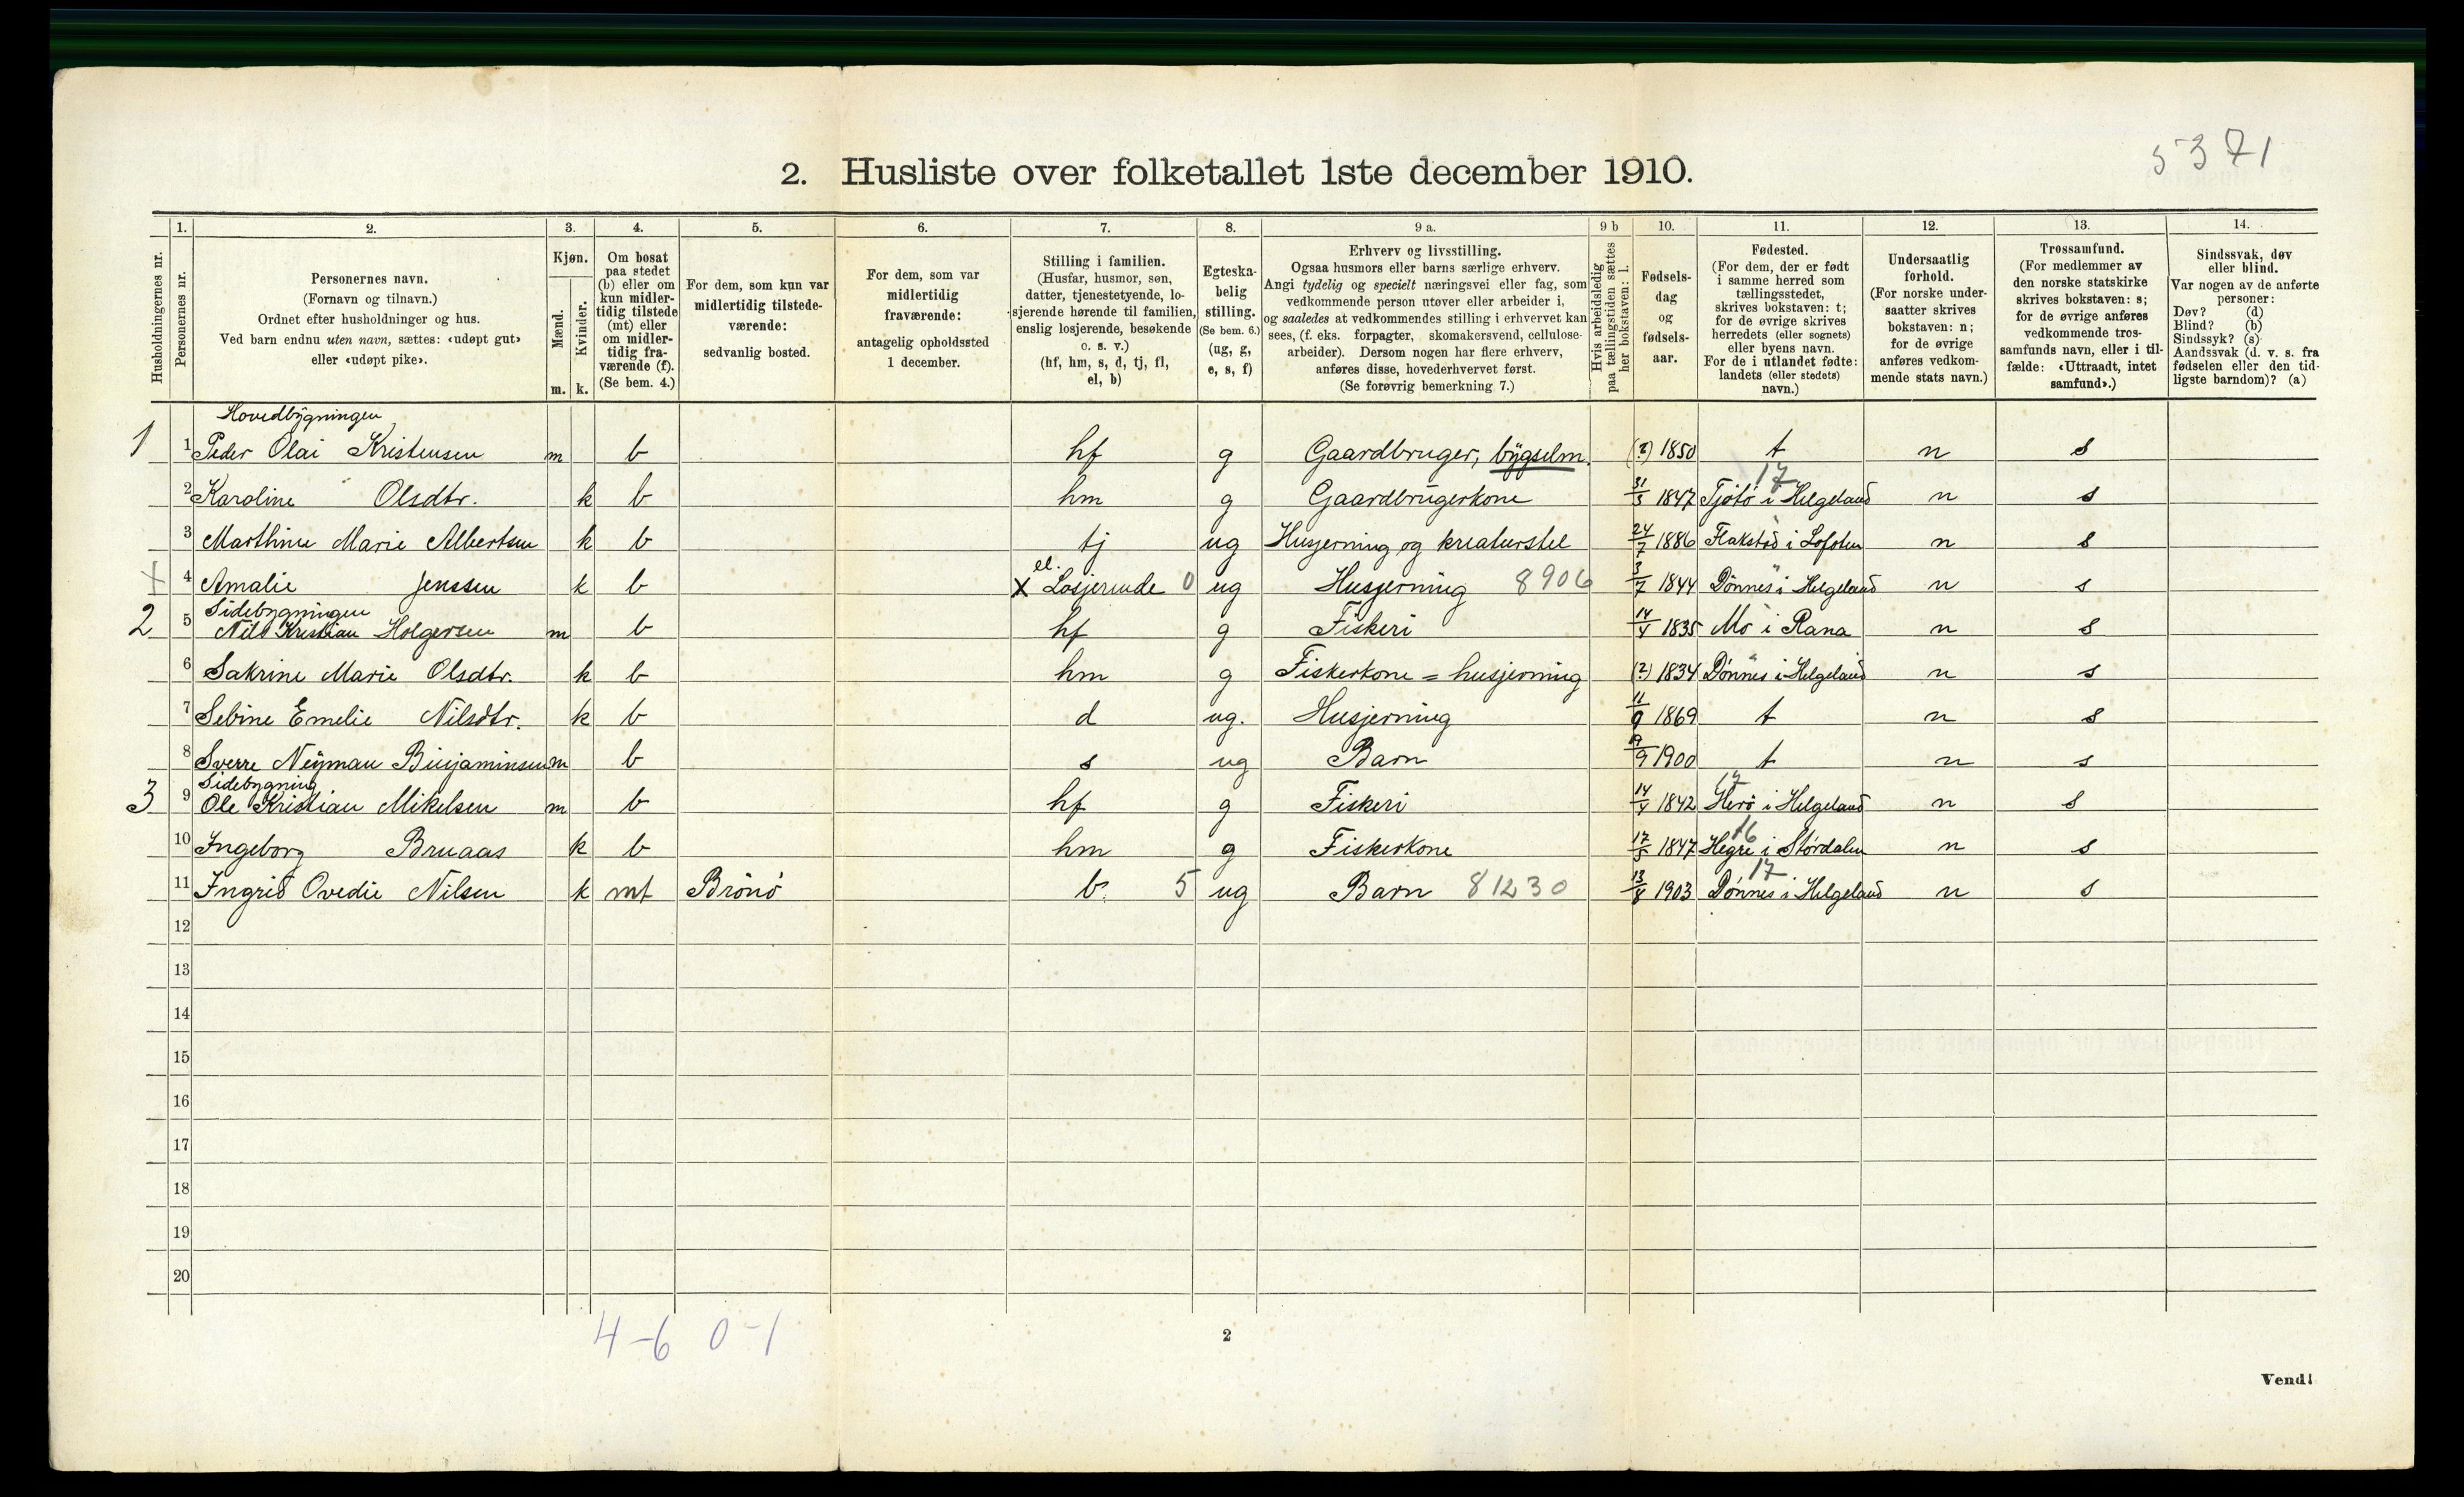 5371
2. Husliste over folketallet 1ste december 1910.
Husholdningernes nr.
1. Personernes nr.
2. Personernes navn. (Fornavn og tilnavn.) Ordnet efter husholdninger og hus. Ved barn endnu uten navn, sættes: «udøpt gut» eller «udøpt pike».
3. Kjøn. Mænd. m. Kvinder. k.
4. Om bosat paa stedet (b) eller om kun midlertidig tilstede (mt) eller om midlertidig fraværende (f). (Se bem. 4.)
5. For dem, som kun var midlertidig tilstedeværende: sedvanlig bosted.
6. For dem, som var midlertidig fraværende: antagelig opholdssted 1 december.
7. Stilling i familien. (Husfar, husmor, søn, datter, tjenestetyende, losjerende hørende til familien, enslig losjerende, besøkende o. s. v.) (hf, hm, s, d, tj, fl, el, b)
8. Egteskabelig stilling. (Se bem. 6.) (ug, g, e, s, f)
9 a. Erhverv og livsstilling. Ogsaa husmors eller barns særlige erhverv. Angi tydelig og specielt næringsvei eller fag, som vedkommende person utøver eller arbeider i, og saaledes at vedkommendes stilling i erhvervet kan sees, (f. eks. forpagter, skomakersvend, cellulosearbeider). Dersom nogen har flere erhverv, anføres disse, hovederhvervet først. (Se forøvrig bemerkning 7.)
9 b Hvis arbeidsledig paa tællingstiden sættes her bokstaven: l.
10. Fødselsdag og fødselsaar.
11. Fødested. (For dem, der er født i samme herred som tællingsstedet, skrives bokstaven: t; for de øvrige skrives herredets (eller sognets) eller byens navn. For de i utlandet fødte: landets (eller stedets) navn.)
12. Undersaatlig forhold. (For norske undersaatter skrives bokstaven: n; for de øvrige anføres vedkommende stats navn.)
13. Trossamfund. (For medlemmer av den norske statskirke skrives bokstaven: s; for de øvrige anføres vedkommende trossamfunds navn, eller i tilfælde: «Uttraadt, intet samfund».)
14. Sindssvak, døv eller blind. Var nogen av de anførte personer: Døv? (d) Blind? (b) Sindssyk? (s) Aandssvak (d. v. s. fra fødselen eller den tidligste barndom)? (a)
Hovedbygningen
1 1 Peder Olai Kristensen m b hf g Gaardbruger, bygselm. (?) 1850 t n s
17
2 Karoline Olsdtr. k b hm g Gaardbrugerkone 31/3 1847 Tjøtø i Helgeland n s
3 Marthine Marie Albertsen k b tj ug Husjerning og kreaturstel 24/7 1886 Flakstad i Lofoten n s
el.
+ 4 Amalie Jenssen k b X Losjerende 0 ug Husjerning 8906 3/7 1844 Dønnes i Helgeland n s
Sidebygningen
2 5 Nils Kristian Holgersen m b hf g Fiskeri 14/4 1835 Mo i Rana n s
6 Sakrine Marie Olsdtr. k b hm g Fiskerkone = husjerning (?) 1834 Dønnes i Helgeland n s
7 Sebine Emelie Nilsdtr. k b d ug. Husjerning 11/9 1869 t n s
8 Sverre Neyman Binjaminsen m b s ug Barn 19/9 1900 t n s
Sidebygning 17
3 9 Ole Kristian Mikelsen m b hf g Fiskeri 14/4 1842 Herø i Helgeland n s
16
10 Ingeborg Bruaas k b hm g Fiskerkone 17/5 1847 Hegre i Størdalen n s
17
11 Ingrid Ovedie Nilsen k mt Brønø b. 5 ug Barn 81230 13/8 1903 Dønnes i Helgeland n s
12
13
14
15
16
17
18
19
20
4-6 0-1
2
Vend!